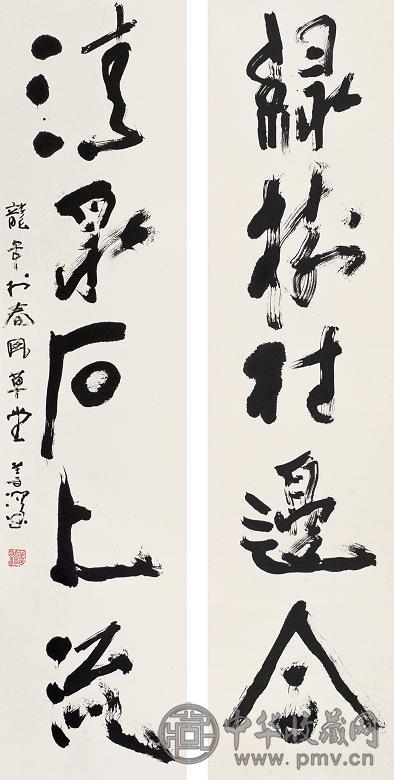 綠樹村邊合
清泉石上流
龍年於春風草堂 善深
中华收藏网
www.pmv.cn